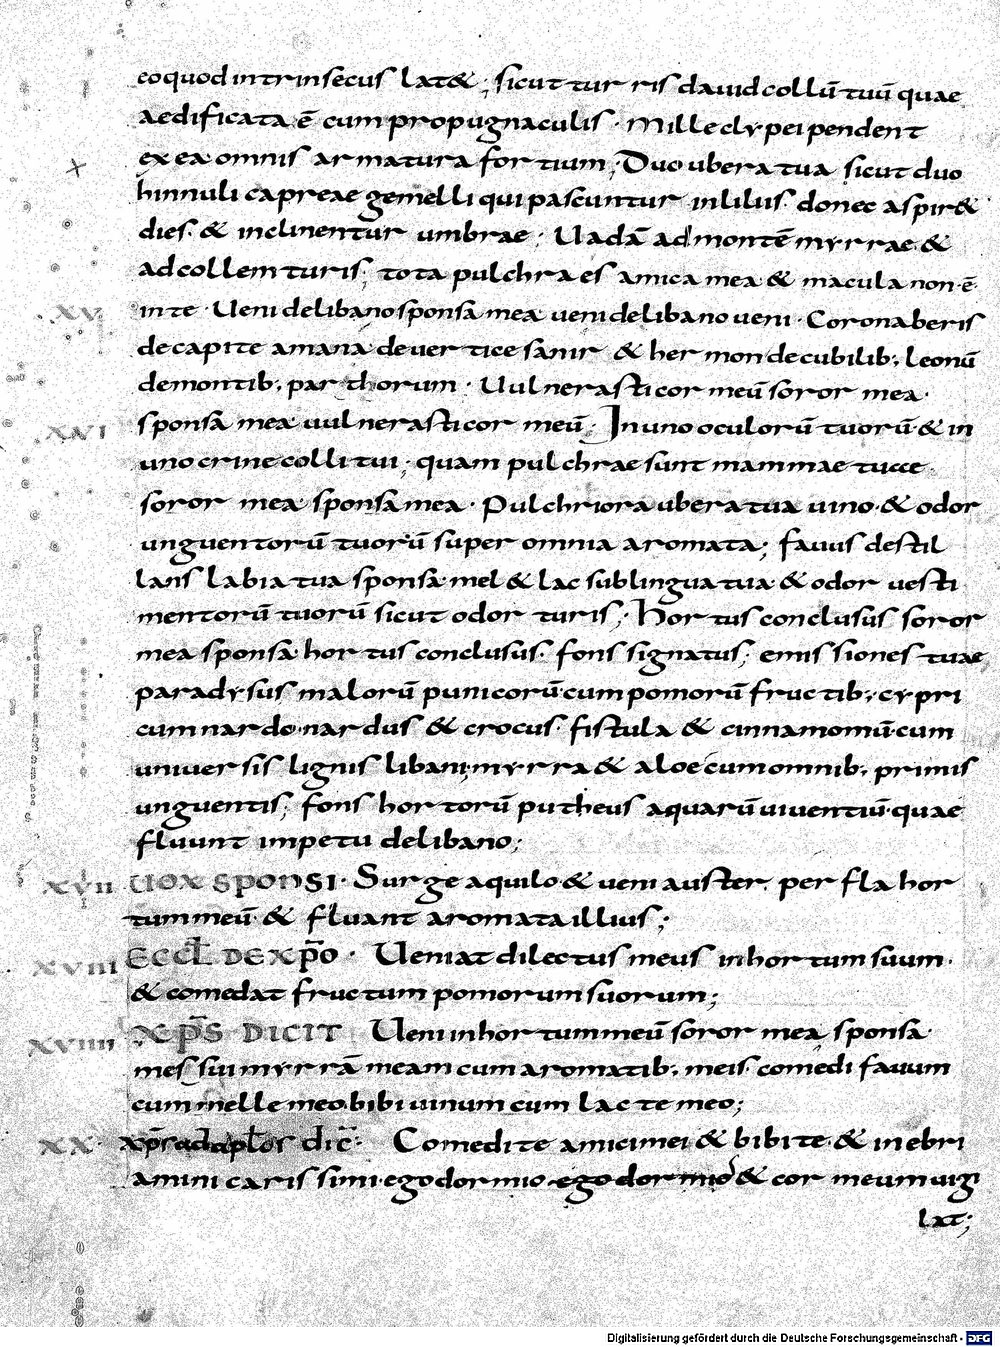 eo quod intrinsecus lat&; sicut turris dauid collū tuū quae
aedificata ē cum propugnaculis · Mille clypei pendent
ex ea omnis armatura fortium; Duo ubera tua sicut duo
hinnuli capreae gemelli qui pascuntur in liliis · donec aspir&
dies · & inclinentur umbrae; Uadā ad montē myrrae · &
ad collem turis; tota pulchra es amica mea & macula non · ē ·
·XV· in te · Ueni de libano sponsa mea ueni de libano ueni · Coronaberis
de capite amana de uertice sanir & hermon de cubilib; leonū
de montib; parthorum · Uulnerasti cor meū soror mea ·
·XVI sponsa mea uulnerasti cor meū · In uno oculorū tuorū · & in
uno crine colli tui; quam pulchrae sunt mammae tuae ·
soror mea sponsa mea · Pulchriora ubera tua uino · & odor
unguentorū tuorū super omnia aromata; fauus destil
lans labia tua sponsa mel & lac sub lingua tua & odor uesti
mentorū tuorū sicut odor turis; Hortus conclusus soror
mea sponsa hortus conclusus · fons signatus; emissiones tuae
paradysus malorū punicorū cum pomorū fructib; cypri
cum nardo · nardus & crocus · fistula & cinnamomū · cum
uniuersis lignis libani · myrra & aloe cum omnib; primis
unguentis; fons hortorū putheus aquarū uiuentiū · quae
fluunt impetu de libano;
XVII UOX SPONSI · Surge aquilo & ueni auster · perfla hor
tum meū · & fluant aromata illius;
XVIII ECCL̄ DE XP̄O · Ueniat dilectus meus in hortum suum ·
& comedat fructum pomorum suorum;
XVIIII XP̄S DICIT Ueni in hortum meū soror mea sponsa ·
messui myrrā meam cum aromatib; meis · comedi fauum
cum melle meo · bibi uinum cum lacte meo;
XX · xp̄s ad apl̄os dic̄ · Comedite amici mei & bibite · & inebri
amini carissimi · ego dormio ego dormio & cor meum uigi
lat;
Digitalisierung gefördert durch die Deutsche Forschungsgemeinschaft - DFG